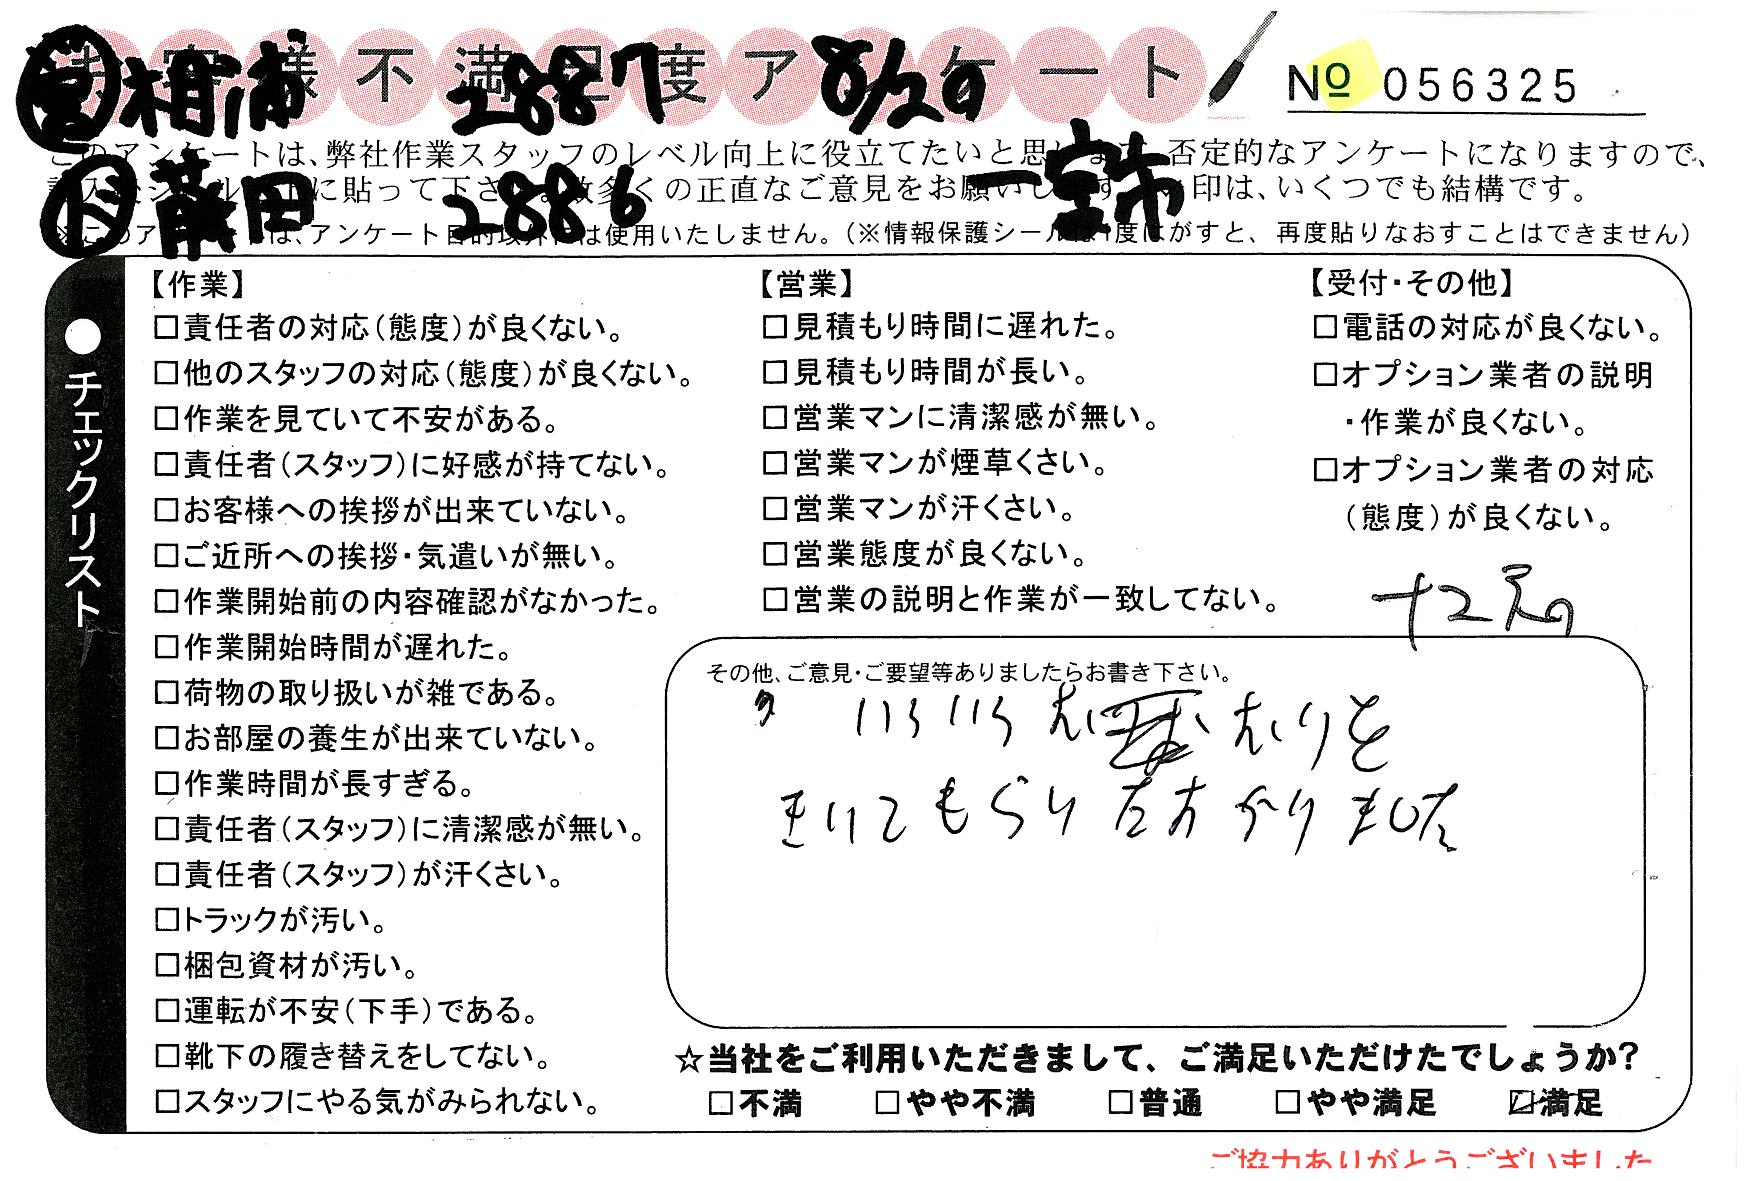 お客様不満足度アンケート
№ 056325
営 相浦 2887 8/29
ド 藤田 2886 一宮市
このアンケートは、弊社作業スタッフのレベル向上に役立てたいと思います。否定的なアンケートになりますので、
に貼って下さい。数多くの正直なご意見をお願いします。 印は、いくつでも結構です。
※このアンケートは、アンケート目的以外には使用いたしません。(※情報保護シールは1度はがすと、再度貼りなおすことはできません)
●チェックリスト
【作業】
□責任者の対応(態度)が良くない。
□他のスタッフの対応(態度)が良くない。
□作業を見ていて不安がある。
□責任者(スタッフ)に好感が持てない。
□お客様への挨拶が出来ていない。
□ご近所への挨拶・気遣いが無い。
□作業開始前の内容確認がなかった。
□作業開始時間が遅れた。
□荷物の取り扱いが雑である。
□お部屋の養生が出来ていない。
□作業時間が長すぎる。
□責任者(スタッフ)に清潔感が無い。
□責任者(スタッフ)が汗くさい。
□トラックが汚い。
□梱包資材が汚い。
□運転が不安(下手)である。
□靴下の履き替えをしてない。
□スタッフにやる気がみられない。
【営業】
□見積もり時間に遅れた。
□見積もり時間が長い。
□営業マンに清潔感が無い。
□営業マンが煙草くさい。
□営業マンが汗くさい。
□営業態度が良くない。
□営業の説明と作業が一致してない。
【受付・その他】
□電話の対応が良くない。
□オプション業者の説明
・作業が良くない。
□オプション業者の対応
(態度)が良くない。
その他、ご意見・ご要望等ありましたらお書き下さい。
いろいろ むりを
きいてもらい たすかりました
☆当社をご利用いただきまして、ご満足いただけたでしょうか?
□不満 □やや不満 □普通 □やや満足 ☑満足
ご協力ありがとうございました